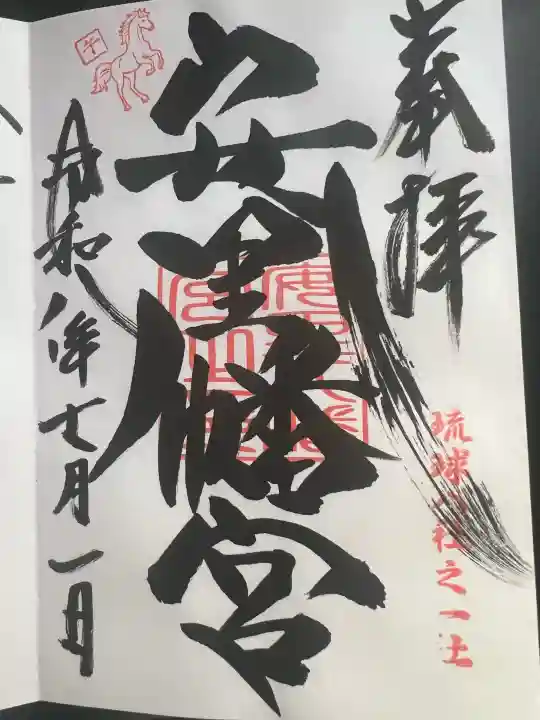 奉拝
琉球八社之一社
安里八幡宮
令和八年七月一日
午